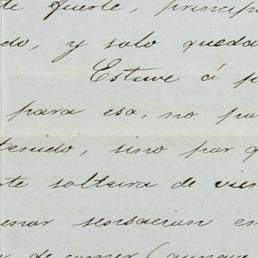 te fuerte, princip
do, y solo queda
Estuve á p
para esa, no pu
tenido, sino por q
te soltura de vien
enar sensacion en
de comer (aunque